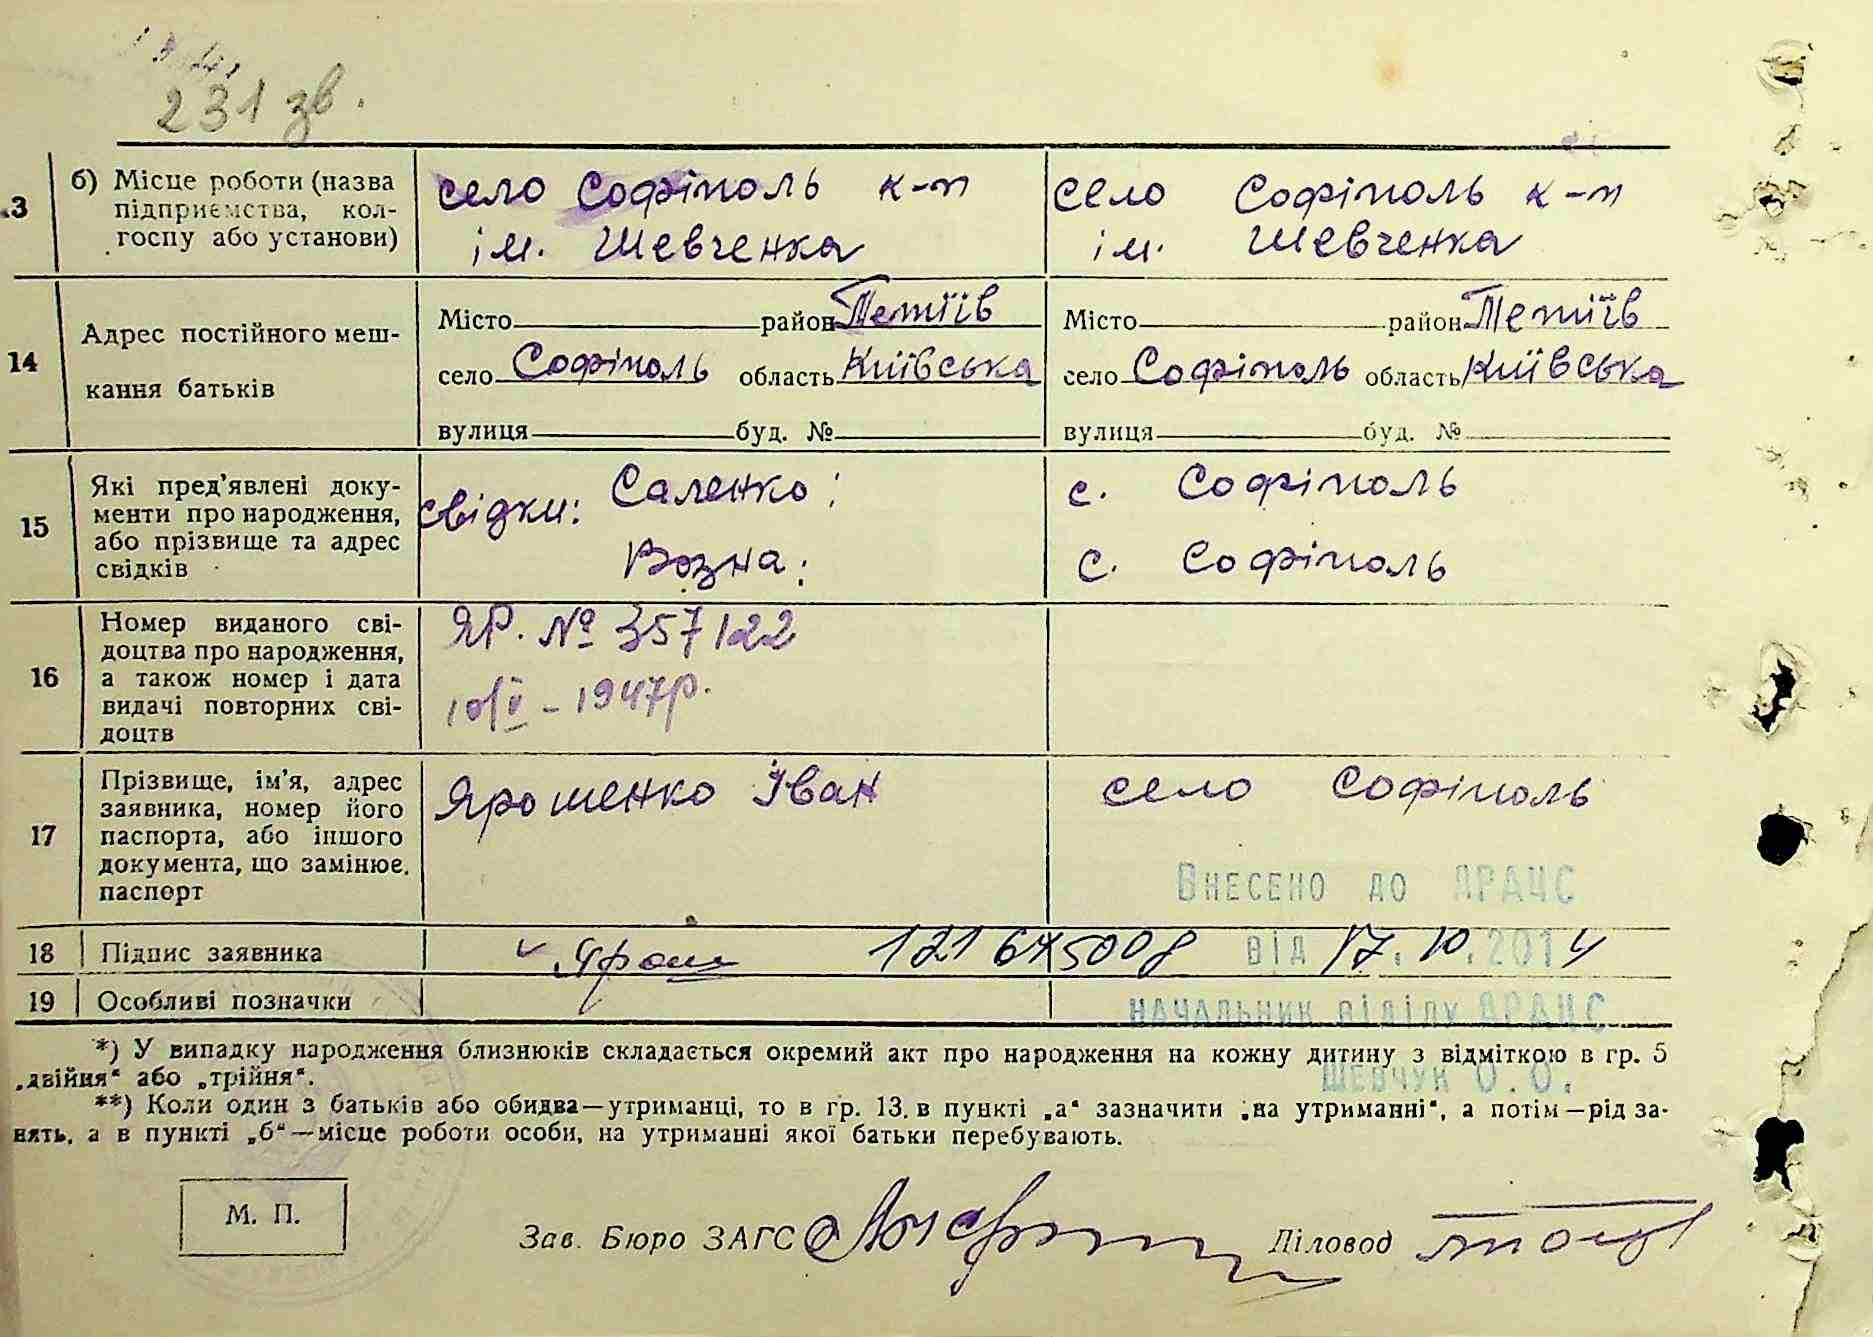 231 зв.
13 б) Місце роботи (назва підприємства, колгоспу або установи)
село Софіполь к-п
ім. Шевченка
село Софіполь к-п
ім. Шевченка
14 Адрес постійного мешкання батьків
Місто район Тетіїв
село Софіполь область Київська
вулиця буд. №
Місто район Тетіїв
село Софіполь область Київська
вулиця буд. №
15 Які пред'явлені документи про народження, або прізвище та адрес свідків
свідки: Саленко: с. Софіполь
Возна: с. Софіполь
16 Номер виданого свідоцтва про народження, а також номер і дата видачі повторних свідоцтв
ЯР. № 357122
10/V – 1947р.
17 Прізвище, ім'я, адрес заявника, номер його паспорта, або іншого документа, що замінює паспорт
Ярошенко Іван село Софіполь
Внесено до ДРАЦС
18 Підпис заявника Ярош 121675008 від 17.10.2014
19 Особливі позначки
начальник відділу ДРАЦС
Шевчук О.О.
*) У випадку народження близнюків складається окремий акт про народження на кожну дитину з відміткою в гр. 5
„двійня“ або „трійня“.
**) Коли один з батьків або обидва—утриманці, то в гр. 13, в пункті „а“ зазначити „на утриманні“, а потім—рід за-
нять, а в пункті „б“—місце роботи особи, на утриманні якої батьки перебувають.
М. П.
Зав. Бюро ЗАГС Діловод